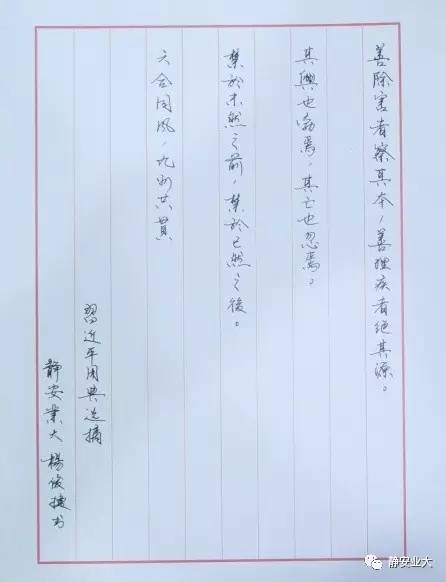 善除害者察其本，善理疾者绝其源。
其興也勃焉，其亡也忽焉。
禁於未然之前，禁於已然之後。
六合同风，九州共贯
習近平用典选摘
静安業大 楊俊捷书
静安业大